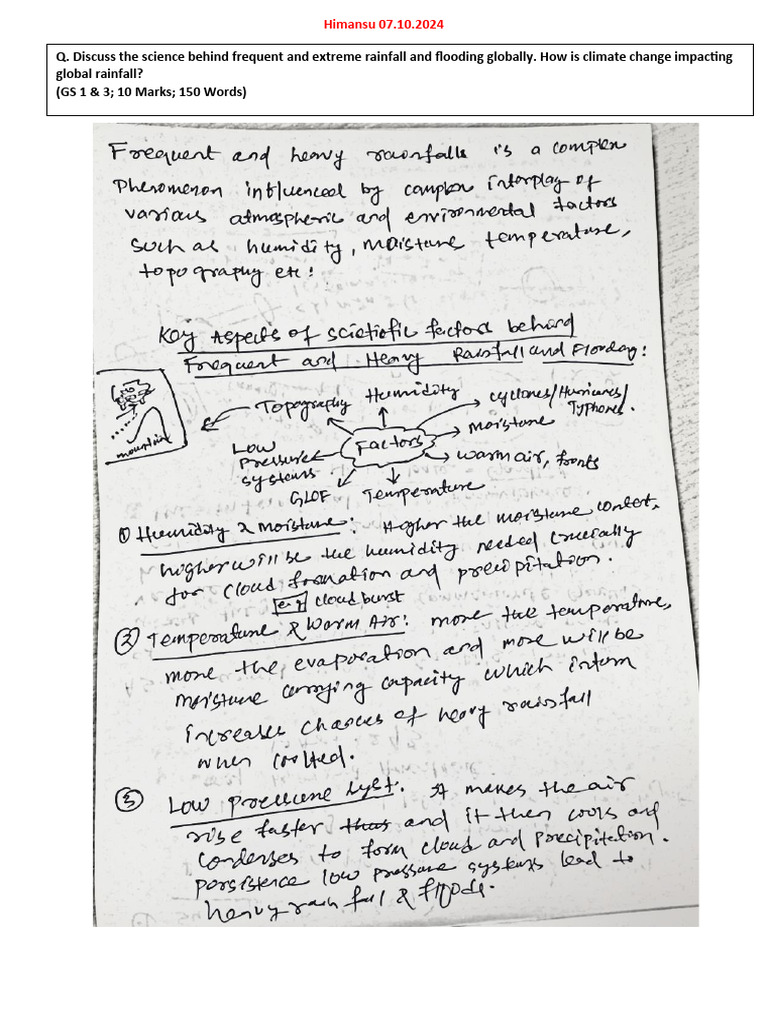 Himansu 07.10.2024
Q. Discuss the science behind frequent and extreme rainfall and flooding globally. How is climate change impacting
global rainfall?
(GS 1 & 3; 10 Marks; 150 Words)
Frequent and heavy rainfalls is a complex
Phenomenon influenced by complex interplay of
various atmospheric and environmental factors
such as humidity, moisture temperature,
topography etc!
Key Aspects of scietiofic factors behind
Frequent and Heavy Rainfall and Flooding:
Topography
Humidity
cyclones/Hurricanes/
Typhones.
moisture
mountain
Low
pressure
systems
Factors
warm air, fronts
GLOF
Temperature
① Humidity & moisture: Higher the moisture content,
higher will be the humidity needed crucially
for cloud formation and precipitation.
e.g cloud burst
② Temperature & Warm Air: more the temperature,
more the evaporation and more will be
moisture carrying capacity which inturn
increases chances of heavy rainfall
when coolted.
③ Low pressure syst. It makes the air
rise faster thus and it then cools and
condenses to form cloud and precipitation.
persistence low pressure systems lead to
heavy rain fall & floods.